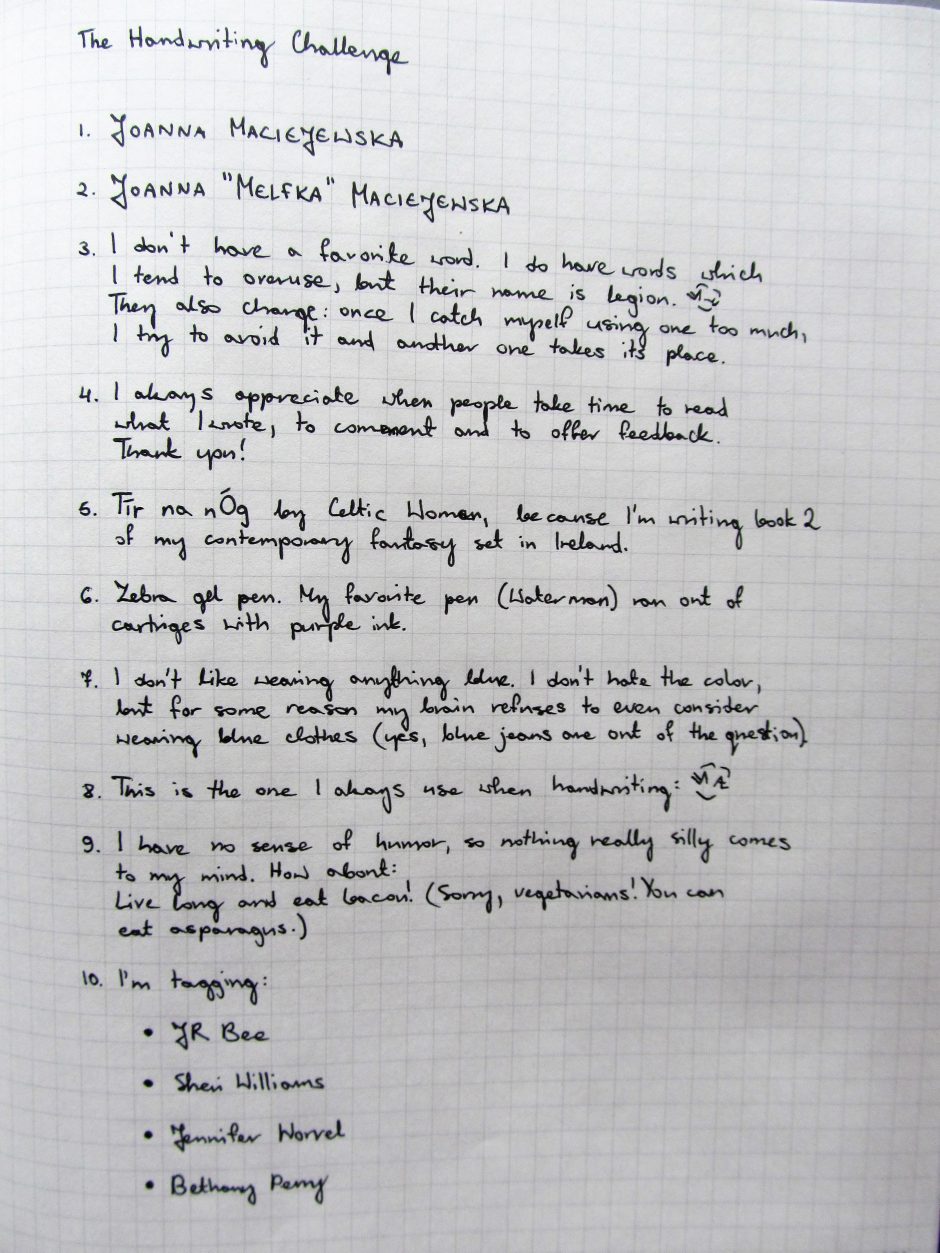 The Handwriting Challenge
1. JOANNA MACIEJEWSKA
2. JOANNA "MELFKA" MACIEJEWSKA
3. I don't have a favorite word. I do have words which
I tend to overuse, but their name is legion.
They also change: once I catch myself using one too much,
I try to avoid it and another one takes its place.
4. I always appreciate when people take time to read
what I wrote, to comment and to offer feedback.
Thank you!
5. Tír na nÓg by Celtic Woman, because I'm writing book 2
of my contemporary fantasy set in Ireland.
6. Zebra gel pen. My favorite pen (Waterman) ran out of
cartriges with purple ink.
7. I don't like wearing anything blue. I don't hate the color,
but for some reason my brain refuses to even consider
wearing blue clothes (yes, blue jeans are out of the question)
8. This is the one I always use when handwriting:
9. I have no sense of humor, so nothing really silly comes
to my mind. How about:
Live long and eat bacon! (Sorry, vegetarians! You can
eat asparagus.)
10. I'm tagging:
• JR Bee
• Sheri Williams
• Jennifer Worrel
• Bethany Perry